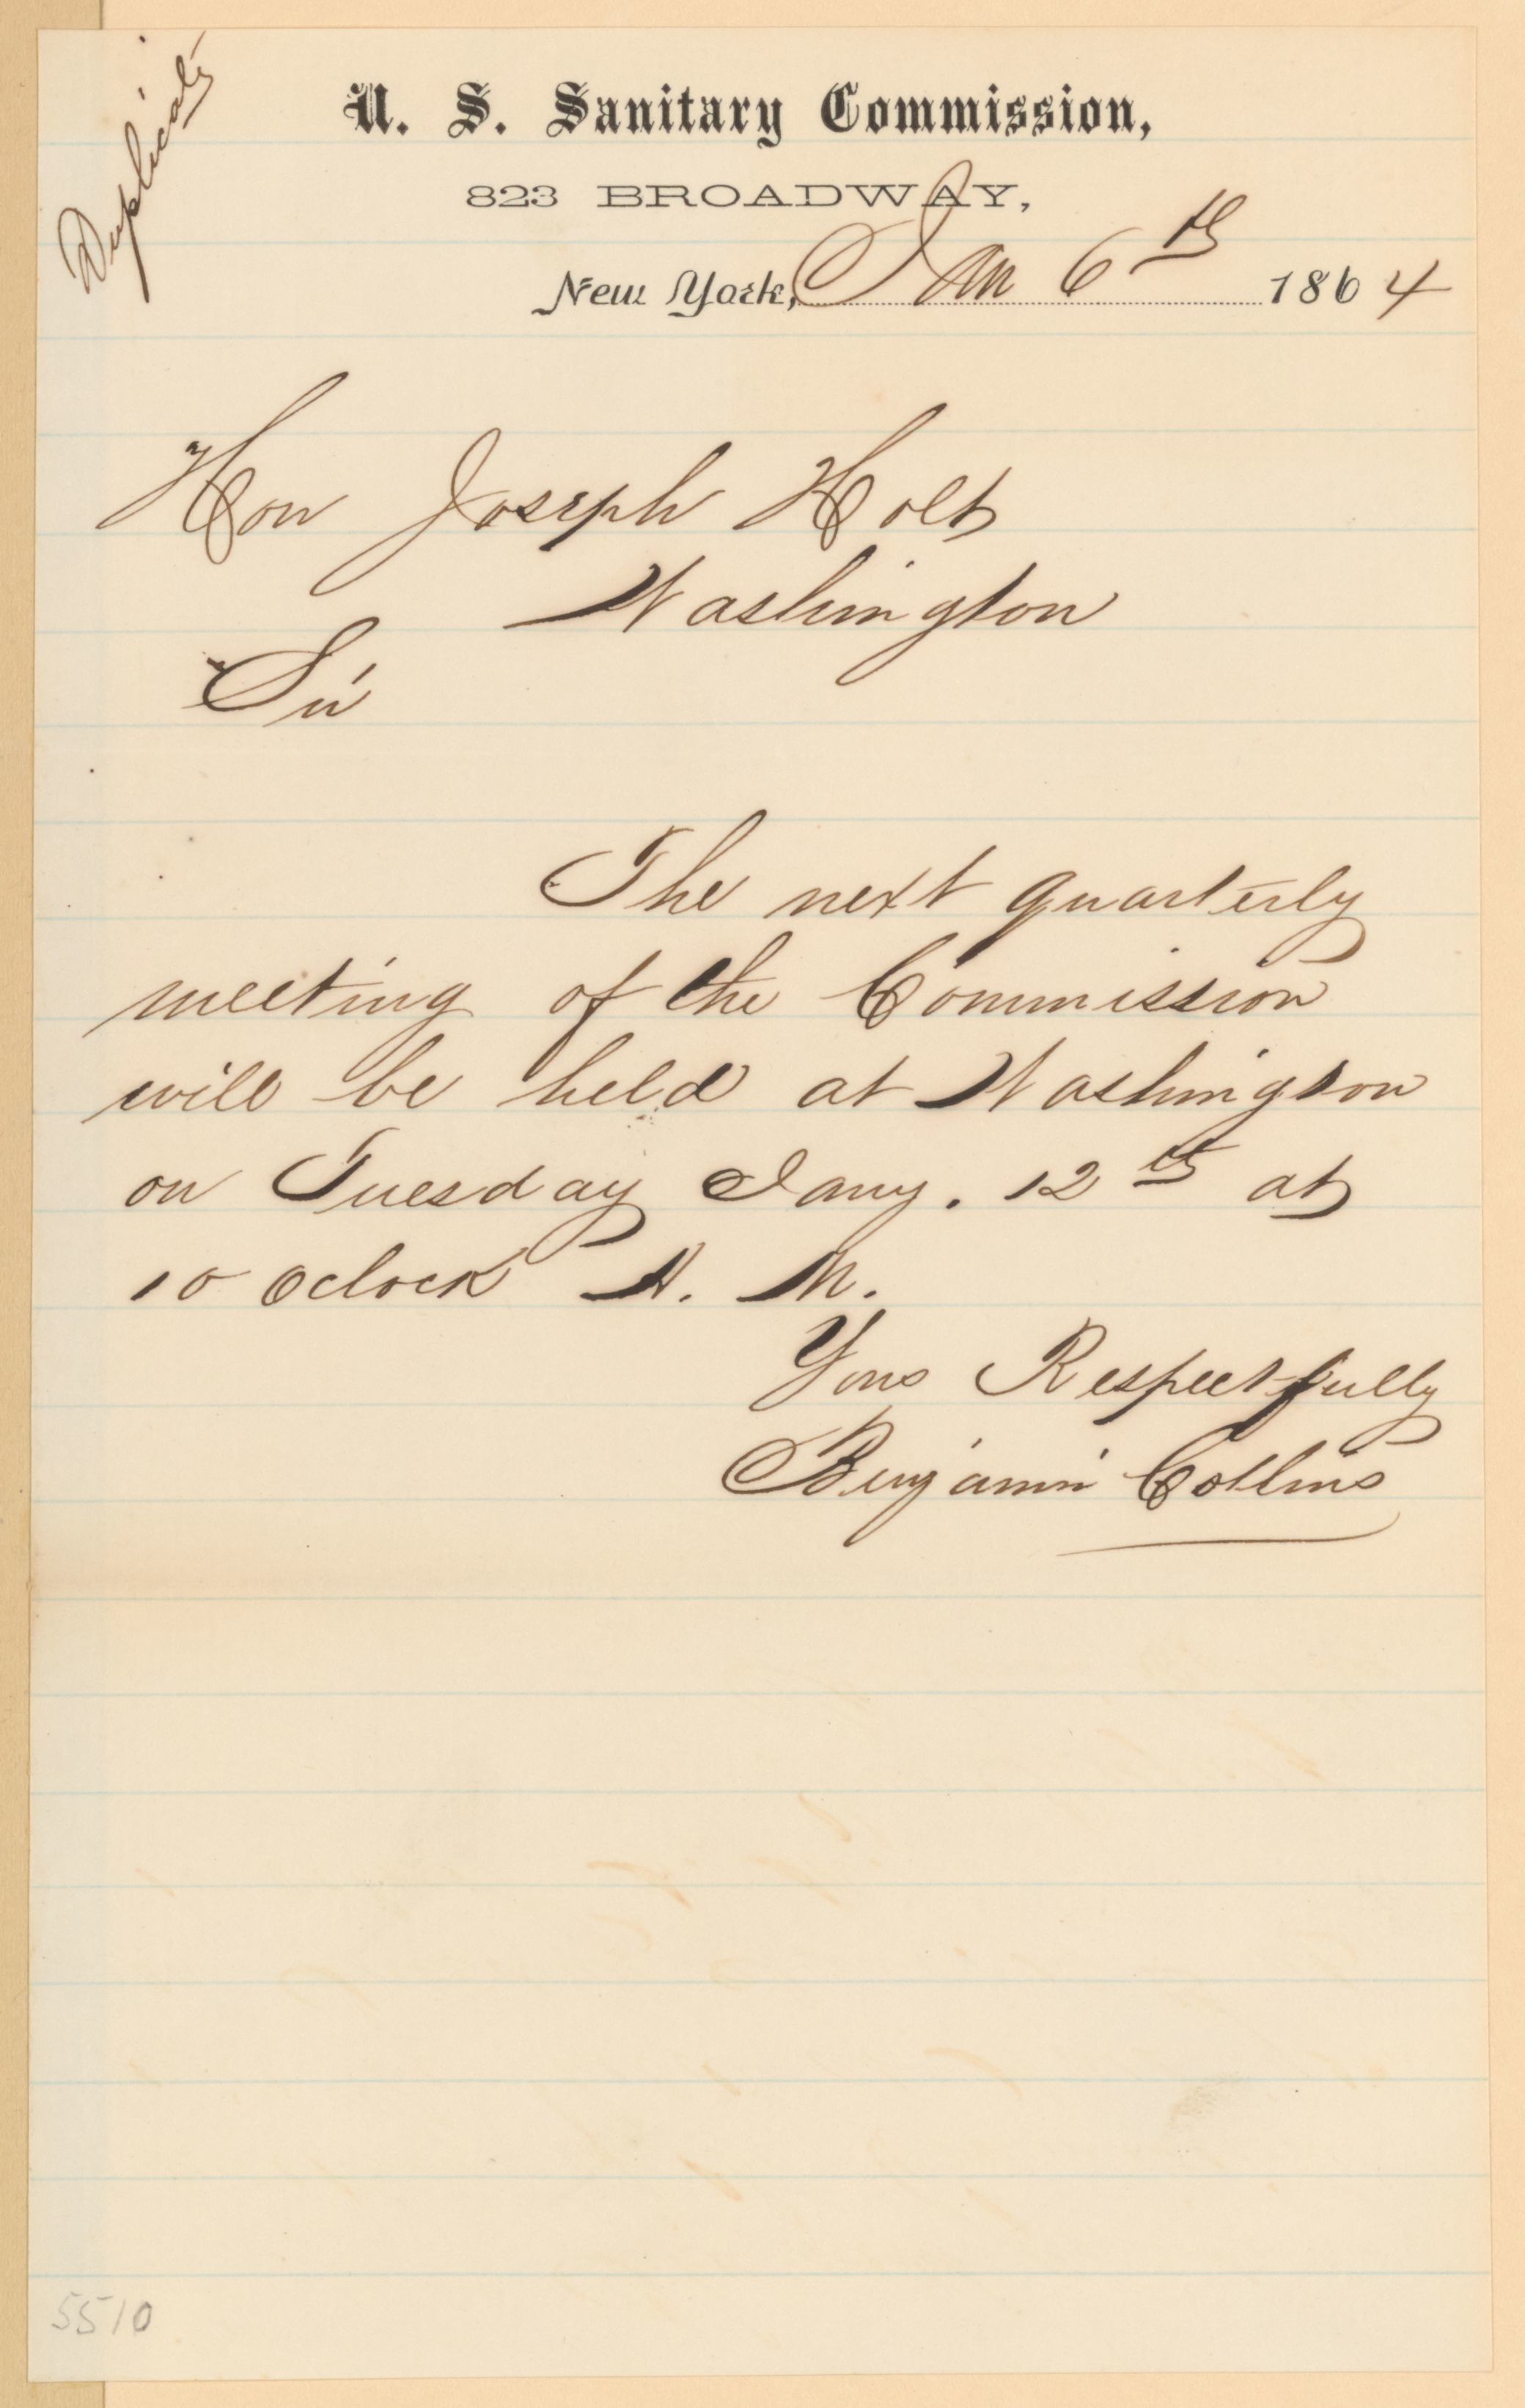 Duplicate
U. S. Sanitary Commission,
823 BROADWAY,
New York, Jan 6th 1864
Hon Joseph Holt
Washington
Sir
The next quarterly
meeting of the Commission
will be held at Washington
on Tuesday Jany. 12th at
10 Oclock A. M.
Yours Respectfully
Benjamin Collins
5510